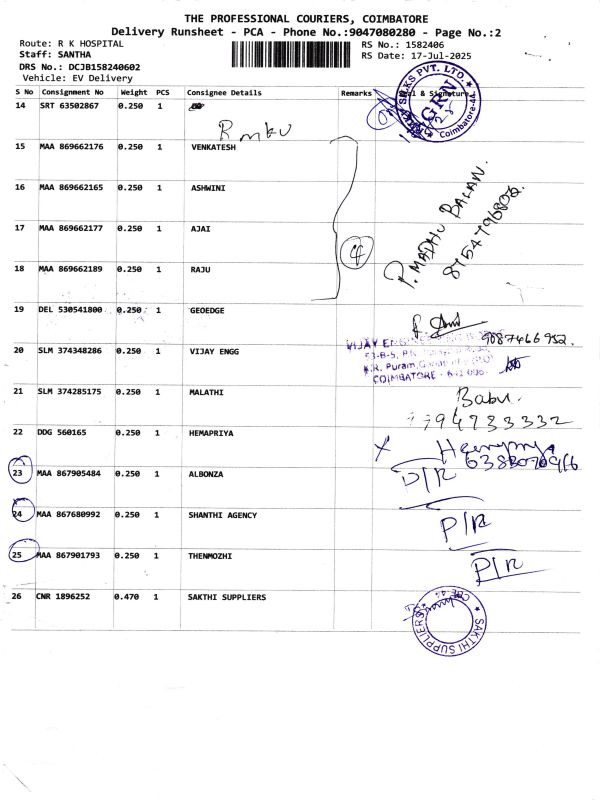 THE PROFESSIONAL COURIERS, COIMBATORE
Delivery Runsheet - PCA - Phone No.:9047080280 - Page No.:2
Route: R K HOSPITAL
Staff: SANTHA
DRS No.: DCJB158240602
Vehicle: EV Delivery
RS No.: 1582406
RS Date: 17-Jul-2025
S No Consignment No Weight PCS Consignee Details Remarks & Signature
14 SRT 63502867 0.250 1
SILKS PVT. LTD. GRN Coimbatore-44
15 MAA 869662176 0.250 1 VENKATESH
16 MAA 869662165 0.250 1 ASHWINI
17 MAA 869662177 0.250 1 AJAI
18 MAA 869662189 0.250 1 RAJU
4
P. MADHU BALAN.
19 DEL 530541800 0.250 1 GEOEDGE
9087466952.
20 SLM 374348286 0.250 1 VIJAY ENGG
VIJAY
53-B-5, P.N.
K.R. Puram,
COIMBATORE - 641 006
21 SLM 374285175 0.250 1 MALATHI
Babu.
9994733332
22 DDG 560165 0.250 1 HEMAPRIYA
X
23 MAA 867905484 0.250 1 ALBONZA
D/R
24 MAA 867680992 0.250 1 SHANTHI AGENCY
P/R
25 MAA 867901793 0.250 1 THENMOZHI
P/R
26 CNR 1896252 0.470 1 SAKTHI SUPPLIERS
SAKTHI SUPPLIERS